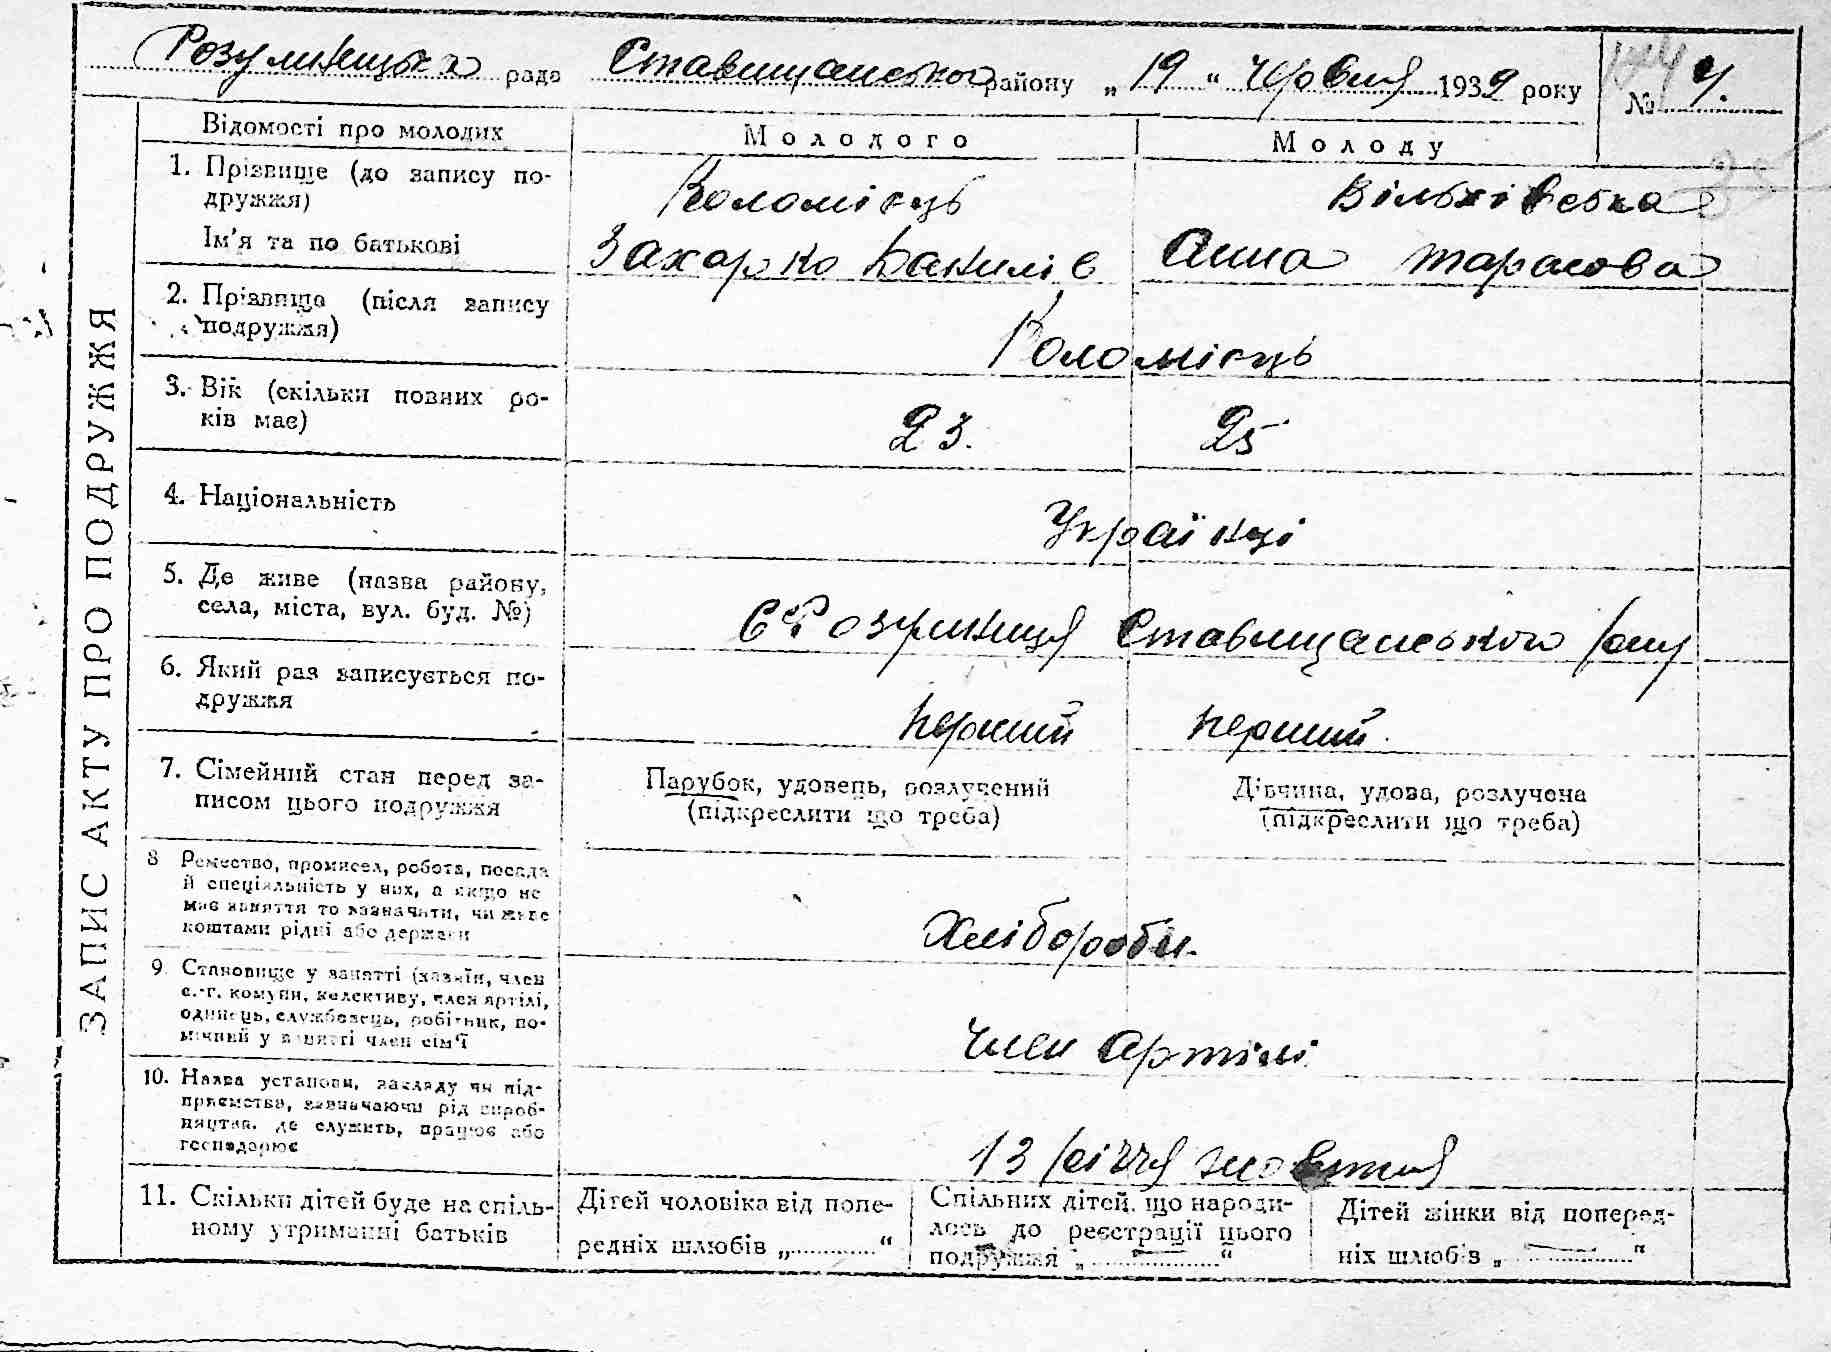 Розумницька рада Ставищанського району „19“ червня 1939 року
№ 4.
ЗАПИС АКТУ ПРО ПОДРУЖЖЯ
Відомості про молодих
Молодого
Молоду
1. Прізвище (до запису по-
дружжя)
Коломієць
Вільхівська
Ім'я та по батькові
Захарко Данилів
Анна Тарасова
2. Прізвище (після запису
подружжя)
Коломієць
3. Вік (скільки повних ро-
ків має)
23.
25
4. Національність
Українці
5. Де живе (назва району,
села, міста, вул. буд. №)
с. Розумниця Ставищанського р-ну
6. Який раз записується по-
дружжя
перший
перший.
7. Сімейний стан перед за-
писом цього подружжя
Парубок, удовець, розлучений
(підкреслити що треба)
Дівчина, удова, розлучена
(підкреслити що треба)
8 Ремество, промисел, робота, посада
й спеціяльність у них, а якщо не
має заняття то зазначити, чи живе
коштами рідні або держави
Хлібороби.
9. Становище у занятті (хазяїн, член
с.-г. комуни, колективу, член артілі,
одинець, службовець, робітник, по-
мічний у занятті член сім'ї
член артілі
10. Назва установи, закладу чи під-
приємства, зазначаючи рід вироб-
ництва, де служить, працює або
господарює
13 річчя жовтня
11. Скільки дітей буде на спіль-
ному утриманні батьків
Дітей чоловіка від попе-
редніх шлюбів „............“
Спільних дітей, що народи-
лось до реєстрації цього
подружжя „ — “
Дітей жінки від поперед-
ніх шлюбів „ — “